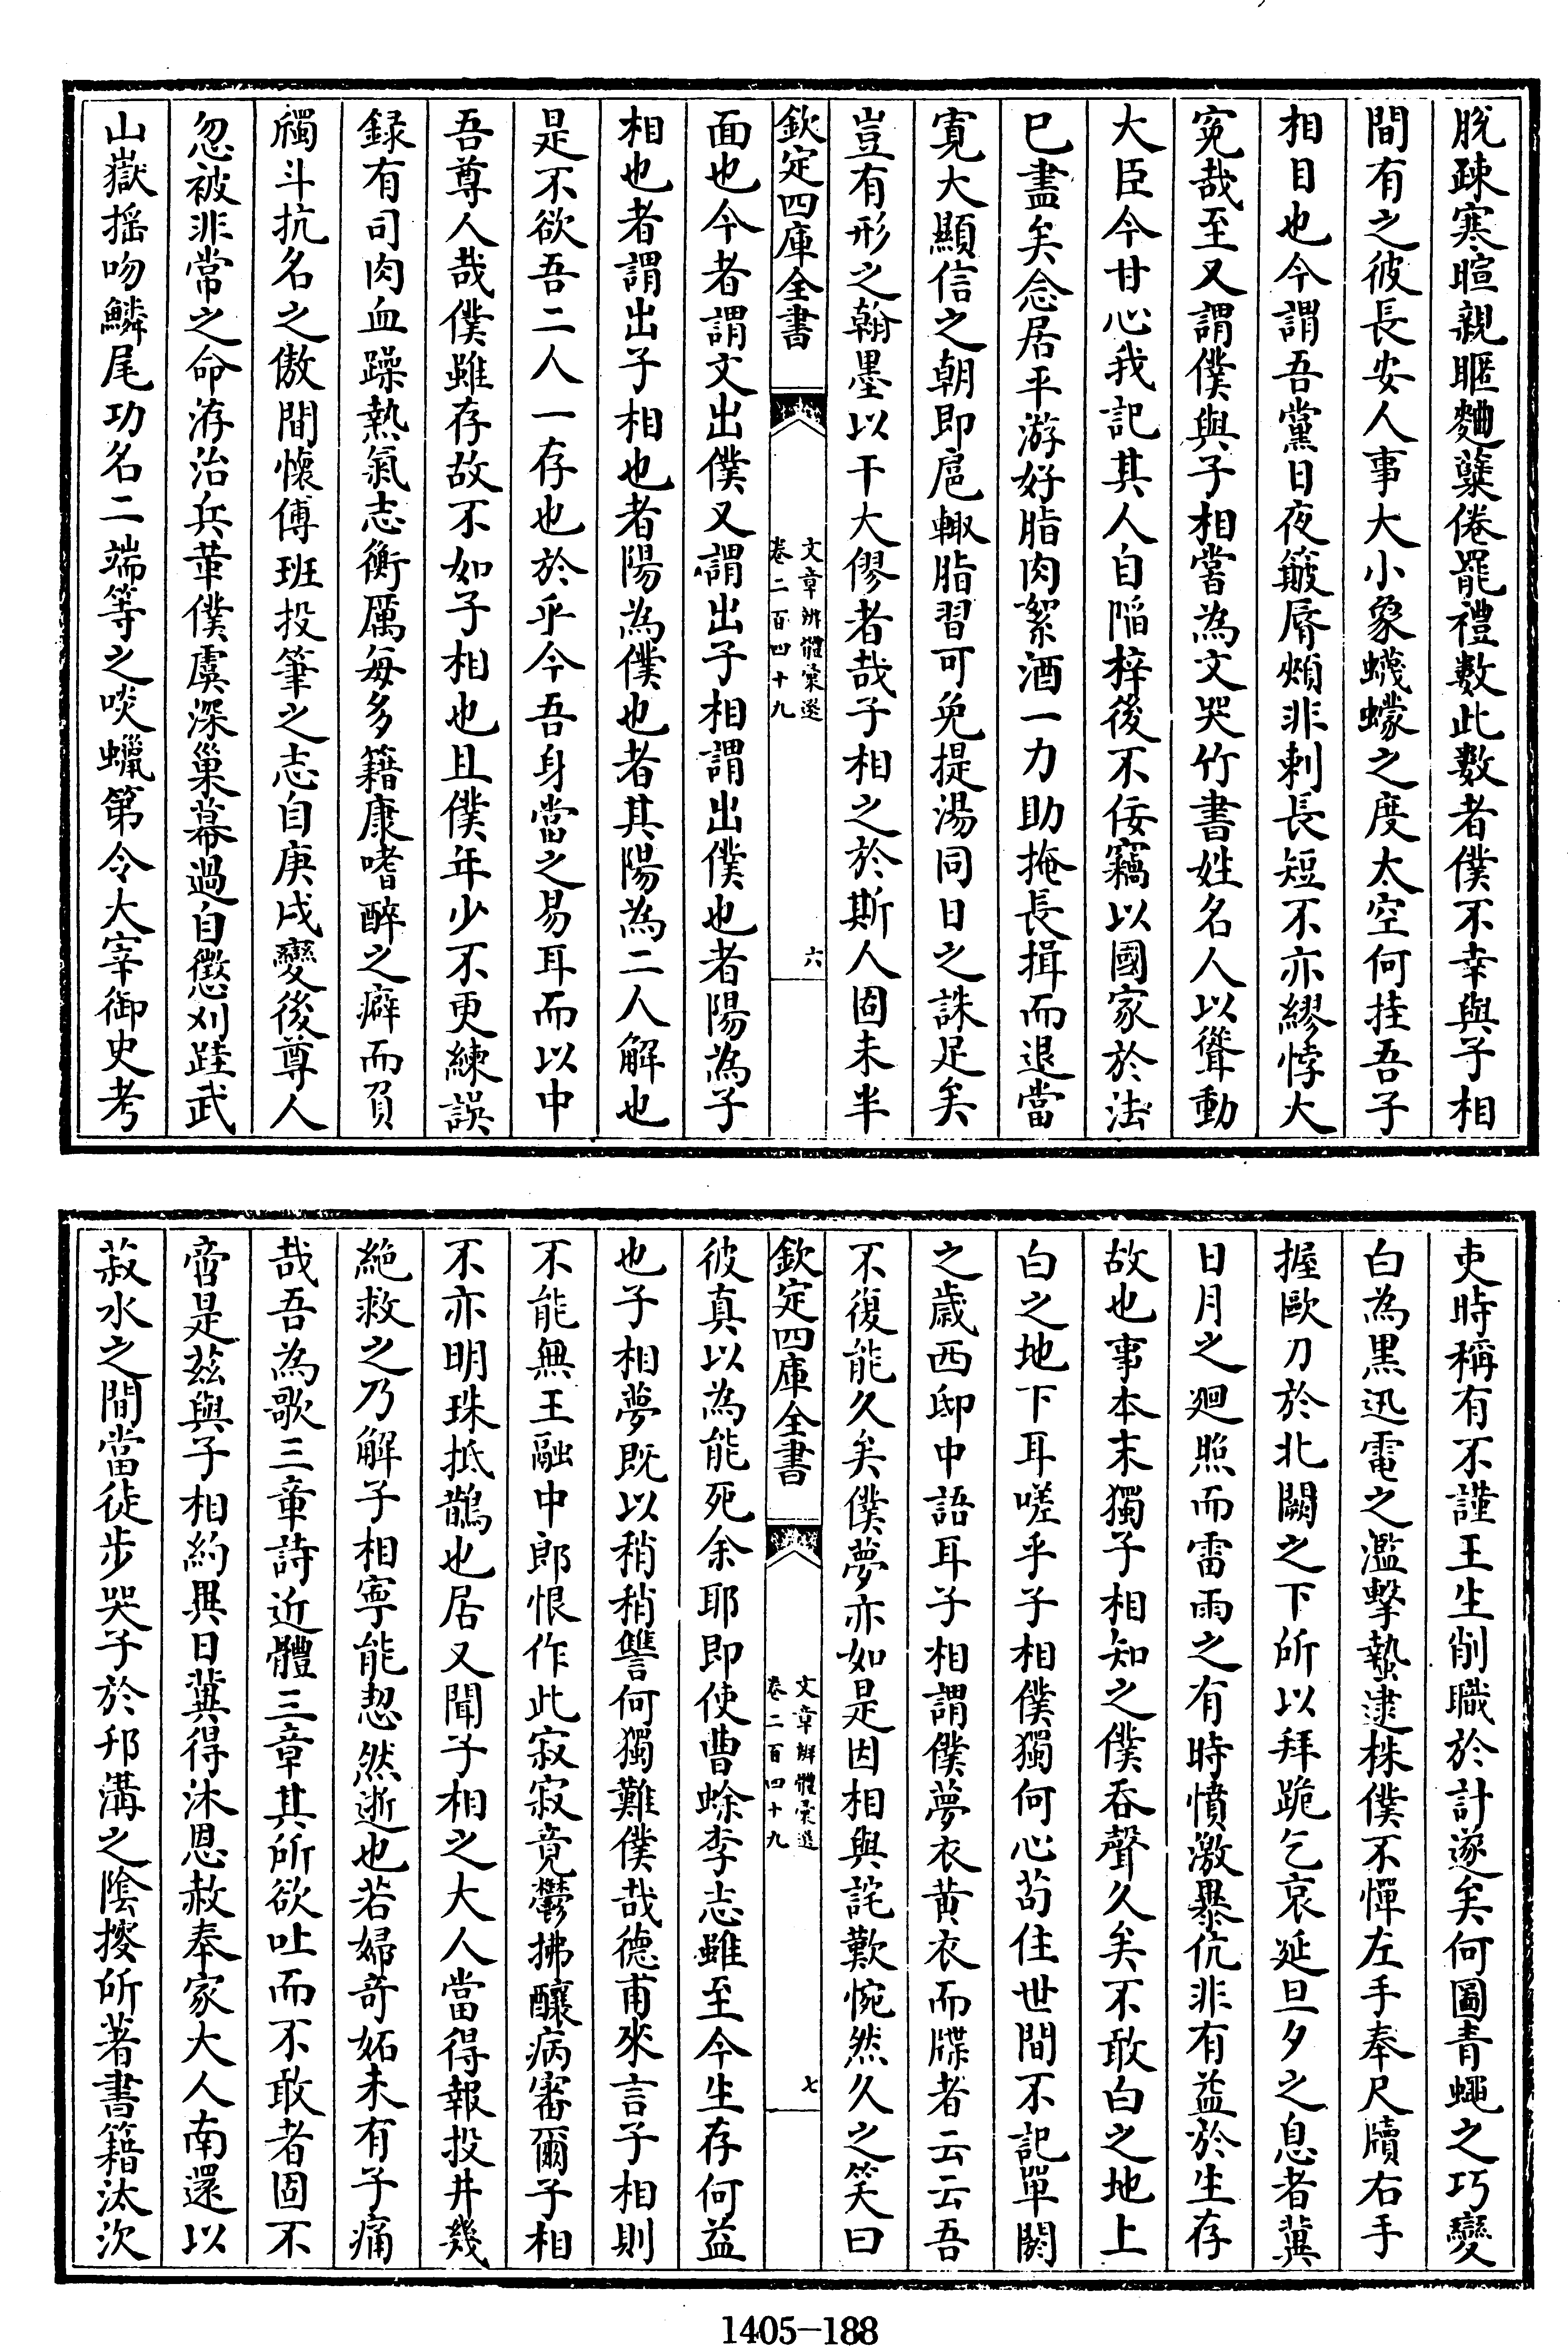 脱疎寒暄親暱麯糵倦罷禮數此數者僕不幸與子相
間有之彼長安人事大小象蠛蠓之度太空何挂吾子
相目也今謂吾黨日夜簸脣頰非刺長短不亦繆悖大
寃哉至又謂僕與子相嘗為文哭竹書姓名人以聳動
大臣今甘心我記其人自陥梓後不佞竊以國家於法
已盡矣念居平游好脂肉絮酒一力助掩長揖而退當
寛大顯信之朝即巵輙脂習可免提湯同日之誅足矣
豈有形之翰墨以干大僇者哉子相之於斯人固未半
欽定四庫全書
文章辨體彙選
卷二百四十九
六
面也今者謂文出僕又謂出子相謂出僕也者陽為子
相也者謂出子相也者陽為僕也者其陽為二人解也
是不欲吾二人一存也於乎今吾身當之易耳而以中
吾尊人哉僕雖存故不如子相也且僕年少不更練誤
録有司肉血躁熱氣志衡厲每多籍康嗜醉之癖而負
禰斗抗名之傲間懷傅班投筆之志自庚戌變後尊人
忽被非常之命洊治兵革僕虞深巢幕過自懲刈跬武
山嶽揺吻鱗尾功名二端等之啖蠟第令大宰御史考
吏時稱有不謹王生削職於計遂矣何圖青蠅之巧變
白為黒迅電之濫擊蟄逮株僕不憚左手奉尺牘右手
握歐刀於北闕之下所以拜跪乞哀延旦夕之息者冀
日月之廻照而雷雨之有時憤激暴伉非有益於生存
故也事本末獨子相知之僕吞聲久矣不敢白之地上
白之地下耳嗟乎子相僕獨何心茍住世間不記單閼
之歳西邸中語耳子相謂僕夢衣黄衣而牒者云云吾
不復能久矣僕夢亦如是因相與詫歎惋然久之笑曰
欽定四庫全書
文章辨體彙選
卷二百四十九
七
彼真以為能死余耶即使曹蜍李志雖至今生存何益
也子相夢既以稍稍讐何獨難僕哉德甫來言子相則
不能無王融中郎恨作此寂寂竟鬱拂釀病審爾子相
不亦明珠抵鵲也居又聞子相之大人當得報投井幾
絶救之乃解子相寧能恝然逝也若婦竒妬未有子痛
哉吾為歌三章詩近體三章其所欲吐而不敢者固不
啻是茲與子相約異日冀得沐恩赦奉家大人南還以
菽水之間當徒步哭子於邗溝之陰搜所著書籍汰次
1405-188